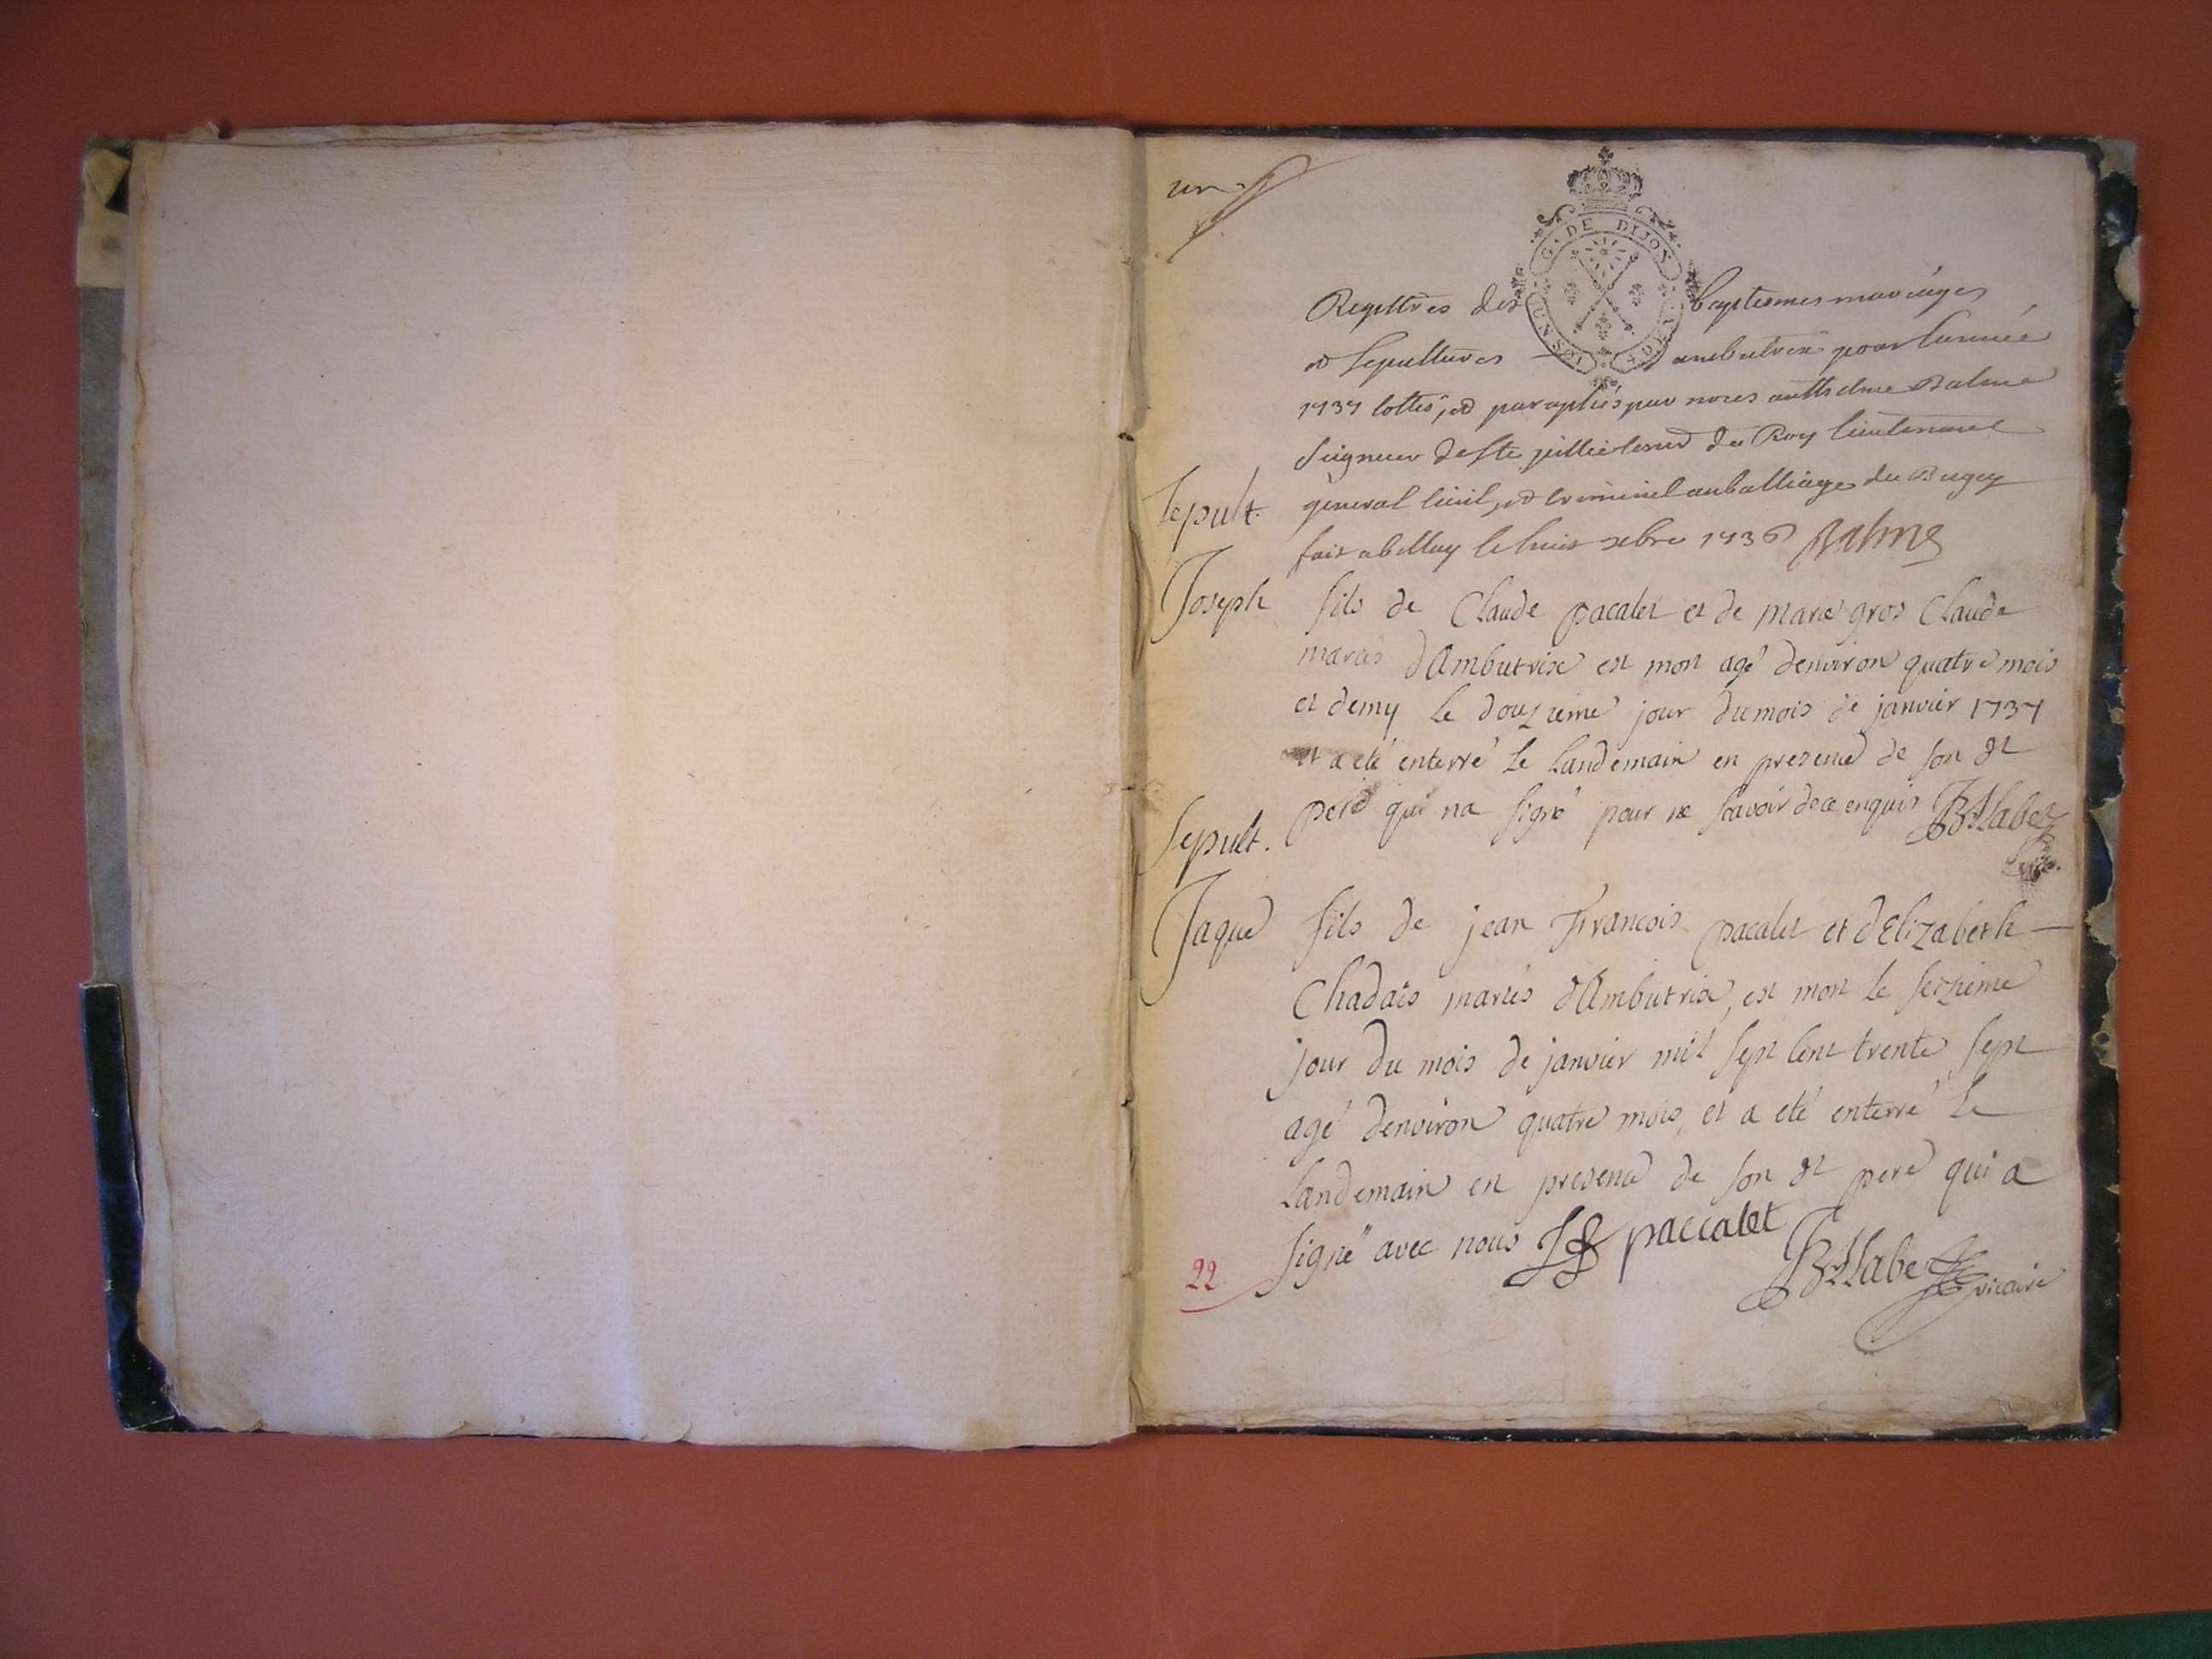 un
G. DE DIJON
UN SOL
Registres des baptesmes mariages
et sepultures ambutrix pour lannée
1737 cottés, et paraphés par nous anthelme Balme
seigneur de ste jullie conser du Roy lieutenant
general civil, et criminel au balliage du Bugey
fait a belley le huit xbre 1736 Balme
Sepult.
Joseph fils de Claude pacalet et de marie gros Claude
mariés d'Ambutrix est mort agé denviron quatre mois
et demy le douzieme jour du mois de janvier 1737
et a eté enterré le Landemain en presence de son dt
pere qui na signé pour ne scavoir de ce enquis
Sepult.
Jaque fils de jean François pacalet et dElizabeth
Chadais mariés d'Ambutrix, est mort le seizieme
jour du mois de janvier mil sept cent trente sept
agé denviron quatre mois, et a eté enterré le
Landemain en presence de son dt pere qui a
signé avec nous JF paccalet
vicaire
22